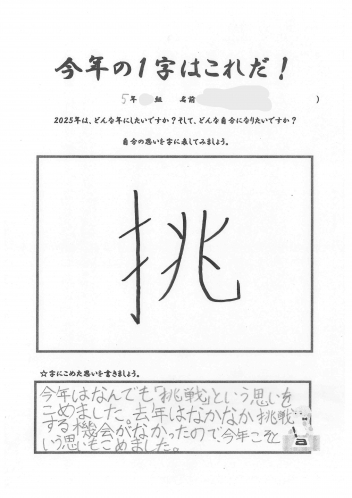 今年の1字はこれだ！
5年 組 名前 )
2025年は、どんな年にしたいですか？そして、どんな自分になりたいですか？
自分の思いを字に表してみましょう。
挑
☆字にこめた思いを書きましょう。
今年はなんでも「挑戦」という思いを
こめました。去年はなかなか挑戦
する機会がなかったので今年こそと
いう思いもこめました。